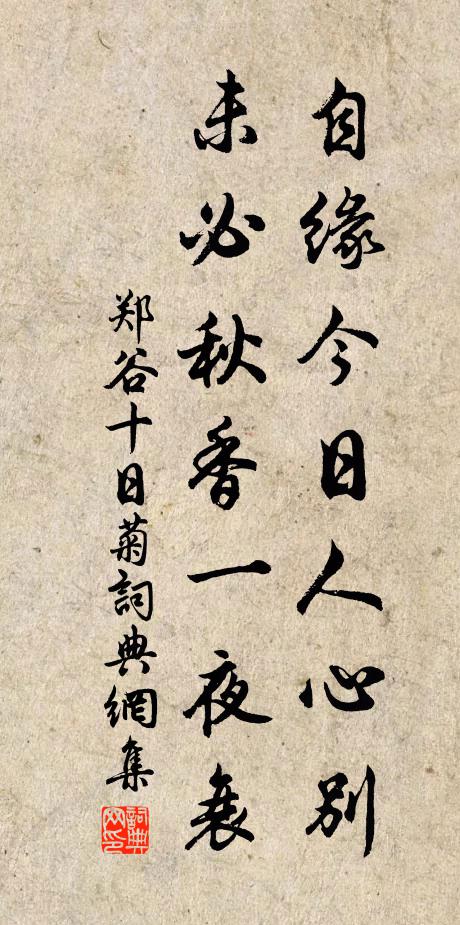 自缘今日人心别
未必秋香一夜衰
郑谷十日菊詞典網集
詞典网印